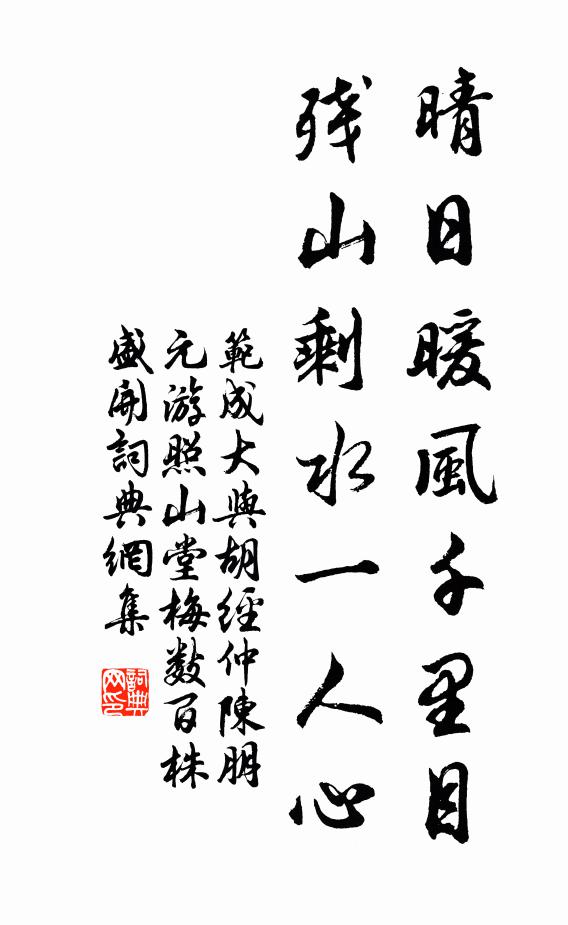 晴日暖風千里目
残山剩水一人心
範成大與胡經仲陳朋
元游照山堂梅数百株
盛開詞典網集
詞典
网印